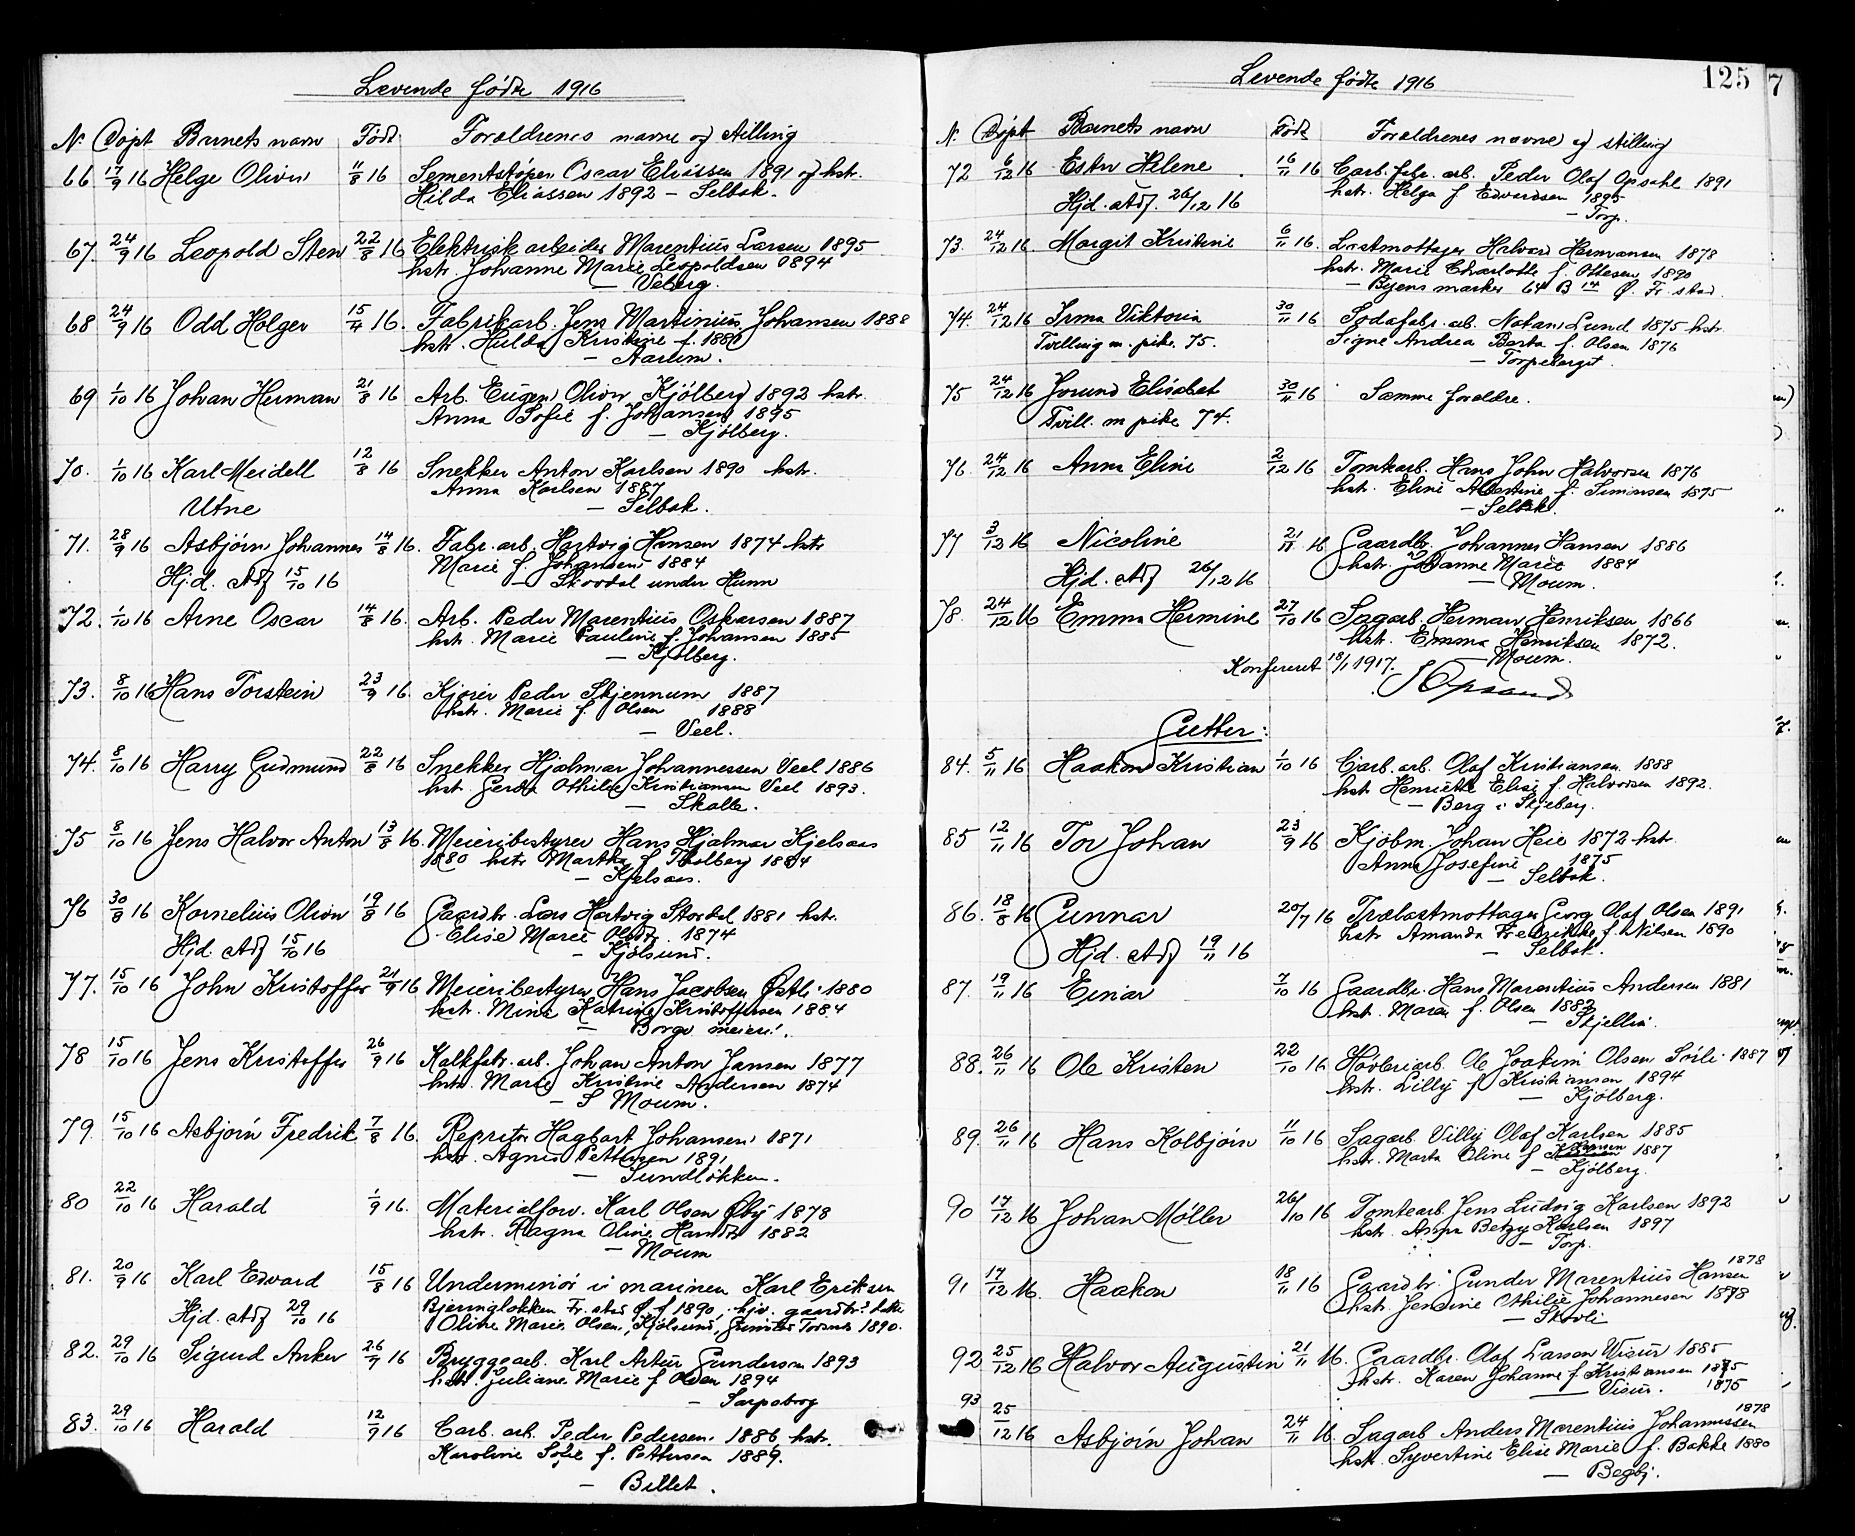 Levende fødte 1916
N. Døpt Barnets navn Født Forældrenes navne og stilling
66 17/9 16 Helge Oliver 11/8 16 Sementstøper Oscar Eliassen 1891 og hstr.
Hilda Eliassen 1892 – Selbak.
67 24/9 16 Leopold Sten 22/8 16 Elektrisk arbeider Marentius Larsen 1895
hstr. Johanne Marie Leopoldsen 1894
– Veberg.
68 24/9 16 Odd Holger 15/4 16. Fabrikarb. Jens Martinius Johansen 1888
hstr. Hulda Kristine f. 1880
– Aarum.
69 1/10 16 Johan Herman 21/8 16 Arb. Eugen Oliver Kjølberg 1892 hstr.
Anna Sofie f. Johansen 1895
– Kjølberg.
70. 1/10 16 Karl Meidell 12/8 16 Snekker Anton Karlsen 1890 hstr.
Utne Anna Karlsen 1887
– Selbak.
71. 28/9 16 Asbjørn Johannes 14/8 16. Fabr. arb. Hartvig Hansen 1874 hstr
Hjd. Stdf 15/10 16 Marie f. Johansen 1884
– Skovdal under Hunn
72. 1/10 16 Arne Oscar 14/8 16. Arb. Peder Marentius Oskarsen 1887
hstr. Marie Pauline f. Johansen 1885
– Kjølberg.
73. 8/10 16 Hans Torstein 23/9 16. Kjører Peder Skjennum 1887
hstr. Marie f. Olsen 1888
– Veel.
74. 8/10 16 Harry Gudmund 22/8 16 Snekker Hjalmar Johannessen Veel 1886
hst. Gerda Othilde Kristiansen Veel 1893.
– Skolle.
75 8/10 16 Jens Halvor Anton 13/8 16. Meieribestyrer Hans Hjalmar Kjelsaas
1880 hstr Martha f. Tholberg 1884
– Kjelsaas.
76 30/8 16 Kornelius Oliver 19/8 16 Gaardbr. Lars Hartvig Stordal 1881 hstr.
Hjd. Stdf 15/10 16 Elise Marie Olsdtr. 1874
– Kjølsund.
77. 15/10 16 John Kristoffer 21/9 16 Meieribestyrer Hans Jacobsen Østli 1880
hstr. Mina Katrine Kristoffersen 1884
– Borge meieri.
78 15/10 16 Jens Kristoffer 26/9 16 Kalkfabr. arb. Johan Anton Jansen 1877
hstr. Marie Kristine Andersen 1874
– S Moum.
79. 15/10 16 Asbjørn Fredrik 7/8 16. Reprtr. Hagbart Johansen 1871
hstr. Agnes Pettersen 1891
– Sundløkken.
80 22/10 16 Harald 1/9 16. Materialforv. Karl Olsen Øby 1878
hstr. Ragna Oline Hansdtr 1882
– Moum
81. 20/9 16 Karl Edvard 15/8 16 Underminør i marinen Karl Eriksen
Hjd. Stdf 29/10 16 Bjerringløkken Fr. stad Ø. f 1890, hjv. gaardbr. datter
Oline Marie Olsen, Kjølsund, Torsnes 1890.
82. 29/10 16 Sigurd Anker 26/9 16 Bryggearb. Karl Artur Gundersen 1893
hstr. Juliane Marie f Olsen 1894
– Sarpsborg
83. 29/10 16 Harald 12/9 16 Carb. arb. Peder Pedersen 1886 hstr.
Karoline Sofie f. Pettersen 1889.
– Billet.
Levende fødte 1916
125
7
N. Døpt Barnets navn Født Forældrenes navne og stilling
72 6/12 16 Ester Helene 16/11 16 Carb. fabr. arb. Peder Olaf Opsahl 1891
Hjd. Stdf. 26/12 16 hstr. Helga f Edvardsen 1895
– Torp.
73. 24/12 16 Margit Kristine 6/11 16. Lastmottager Halvard Hermansen 1878
hstr. Marie Charlotte f. Ottesen 1890
– Byens marker 64 B 14 Ø. Fr. stad.
74. 24/12 16 Irma Viktoria 30/11 16 Sodafabr. arb. Natan Lund 1875 hstr.
Tvilling m. pike 75. Signe Andrea Berta f. Olsen 1876
– Torpeberget.
75 24/12 16 Jorund Elisabet 30/11 16 Samme forældre.
Tvill. m pike 74.
76. 24/12 16 Anna Eline 2/12 16 Tomtearb. Hans John Halvorsen 1876
hst. Eline Albertine f. Simonsen 1875
– Selbak.
77 3/12 16 Nicoline 21/11 16 Gaardbr. Johannes Hansen 1886
Hjd. Stdf 26/12 16 hstr. Johanne Marie 1884
– Moum.
78. 24/12 16 Emma Hermine 27/10 16 Sagarb. Herman Henriksen 1866
hst. Emma Henriksen 1872.
– Moum.
Konfereret 18/1 1917.
Gutter:
84. 5/11 16 Haakon Kristian 1/10 16 Carb. arb. Olaf Kristiansen 1888
hst Henriette Elise f. Halvorsen 1892.
– Berg i Skjeberg.
85 12/11 16 Tor Johan 23/9 16 Kjøbm. Johan Heie 1872 hstr.
Anna Josefine 1875
– Selbak.
86. 18/8 16 Gunnar 20/7 16 Trælastmottager Georg Olaf Olsen 1891
Hjd Stdf 19/11 16 hstr Amanda Fredrikke f. Nilsen 1890
– Selbak.
87. 19/11 16 Einar 7/10 16 Gaardbr. Hans Marentius Andersen 1881
hstr. Maren f. Olsen 1882
– Skjellin.
88. 26/11 16 Ole Kristen 22/10 16 Høvleriarb. Ole Joakim Olsen Sørli 1887
hstr. Lilly f Kristiansen 1894
– Kjølberg.
89. 26/11 16 Hans Kolbjørn 11/10 16 Sagarb. Villy Olaf Karlsen 1885
hstr. Marta Oline f Hansen 1887
– Kjølberg.
90 17/12 16 Johan Møller 26/10 16 Tomtearb. Jens Ludvig Karlsen 1892
hst. Anna Betzy Karlsen 1897
– Torp.
91 17/12 16. Haakon 18/11 16 Gaardbr. Gunder Marentius Hansen 1878
hstr. Jensine Othilie Johannesen 1878
– Skovli
92 25/12 16 Halvor Augustin 21/11 16. Gaardbr. Olaf Larsen Visur 1885
hstr. Karen Johanne f. Kristiansen 1875
– Visur. 1875
93 25/12 16 Asbjørn Johan 24/11 16. Sagarb Anders Marentius Johannessen 1878
hstr. Syvertine Elise Marie f. Bakke 1880
– Begby.